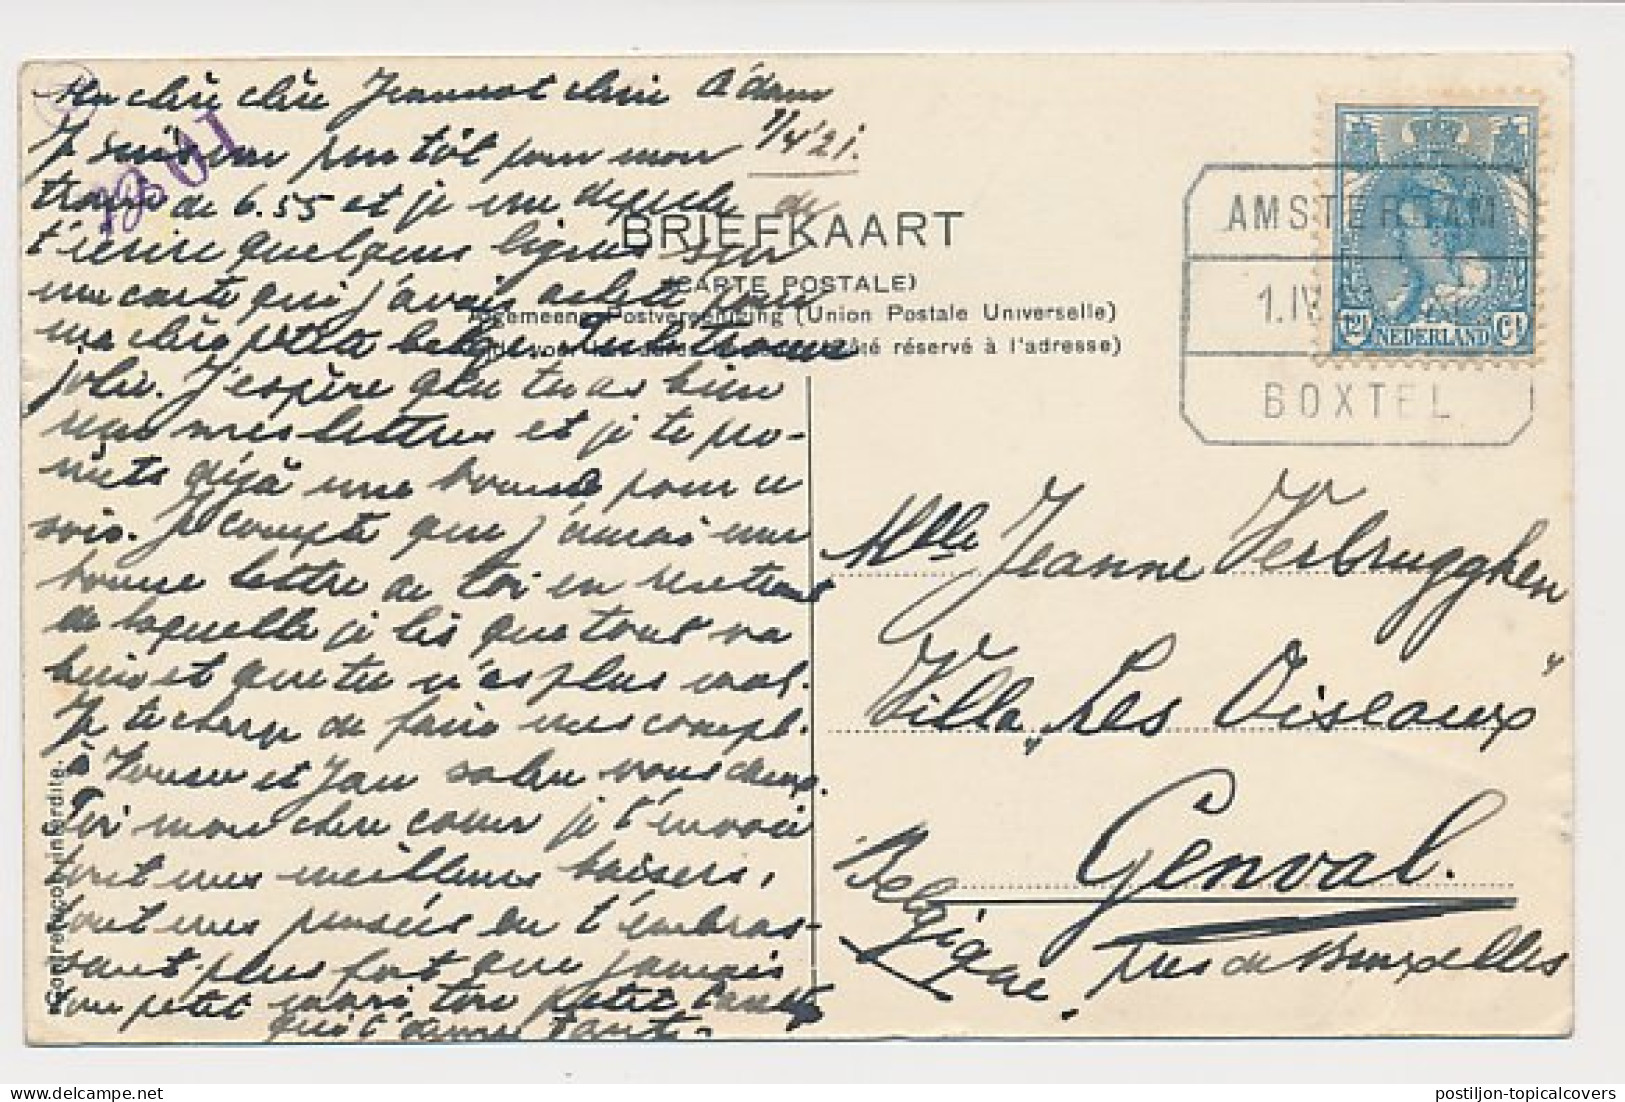 Ma chère chère Jeannot chérie A'dam
1/4'21.
Je suis un peu tôt pour mon
train de 6.55 et je me depeche de
t'écrire quelques lignes sur
une carte que j'avais acheté pour
ma chère petite belge. Tu la trouve
jolie. J'espère que tu as bien
reçu mes lettres et je te pro-
mets déjà une bonne pour ce
soir. Je compte que j'aurai une
bonne lettre de toi en rentrant
de laquelle je lis que tout va
bien et que tu n'as plus mal.
Je te charge de faire mes compl.
à et Jan
Toi mon chère coeur je t'envoie
tout mes meilleurs baisers,
tout mes pensées en t'embras-
sant plus fort que jamais
ton petit mari ton petit
qui t'aime tant.
BRIEFKAART
(CARTE POSTALE)
Algemeene Postvereeniging (Union Postale Universelle)
(Côté réservé à l'adresse)
AMSTERDAM
1.IV
BOXTEL
12½ NEDERLAND Ct
Mlle Jeanne Verbrugghen
Villa „Les Oiseaux"
Genval.
près de Bruxelles
Belgique.
postiljon-topicalcovers